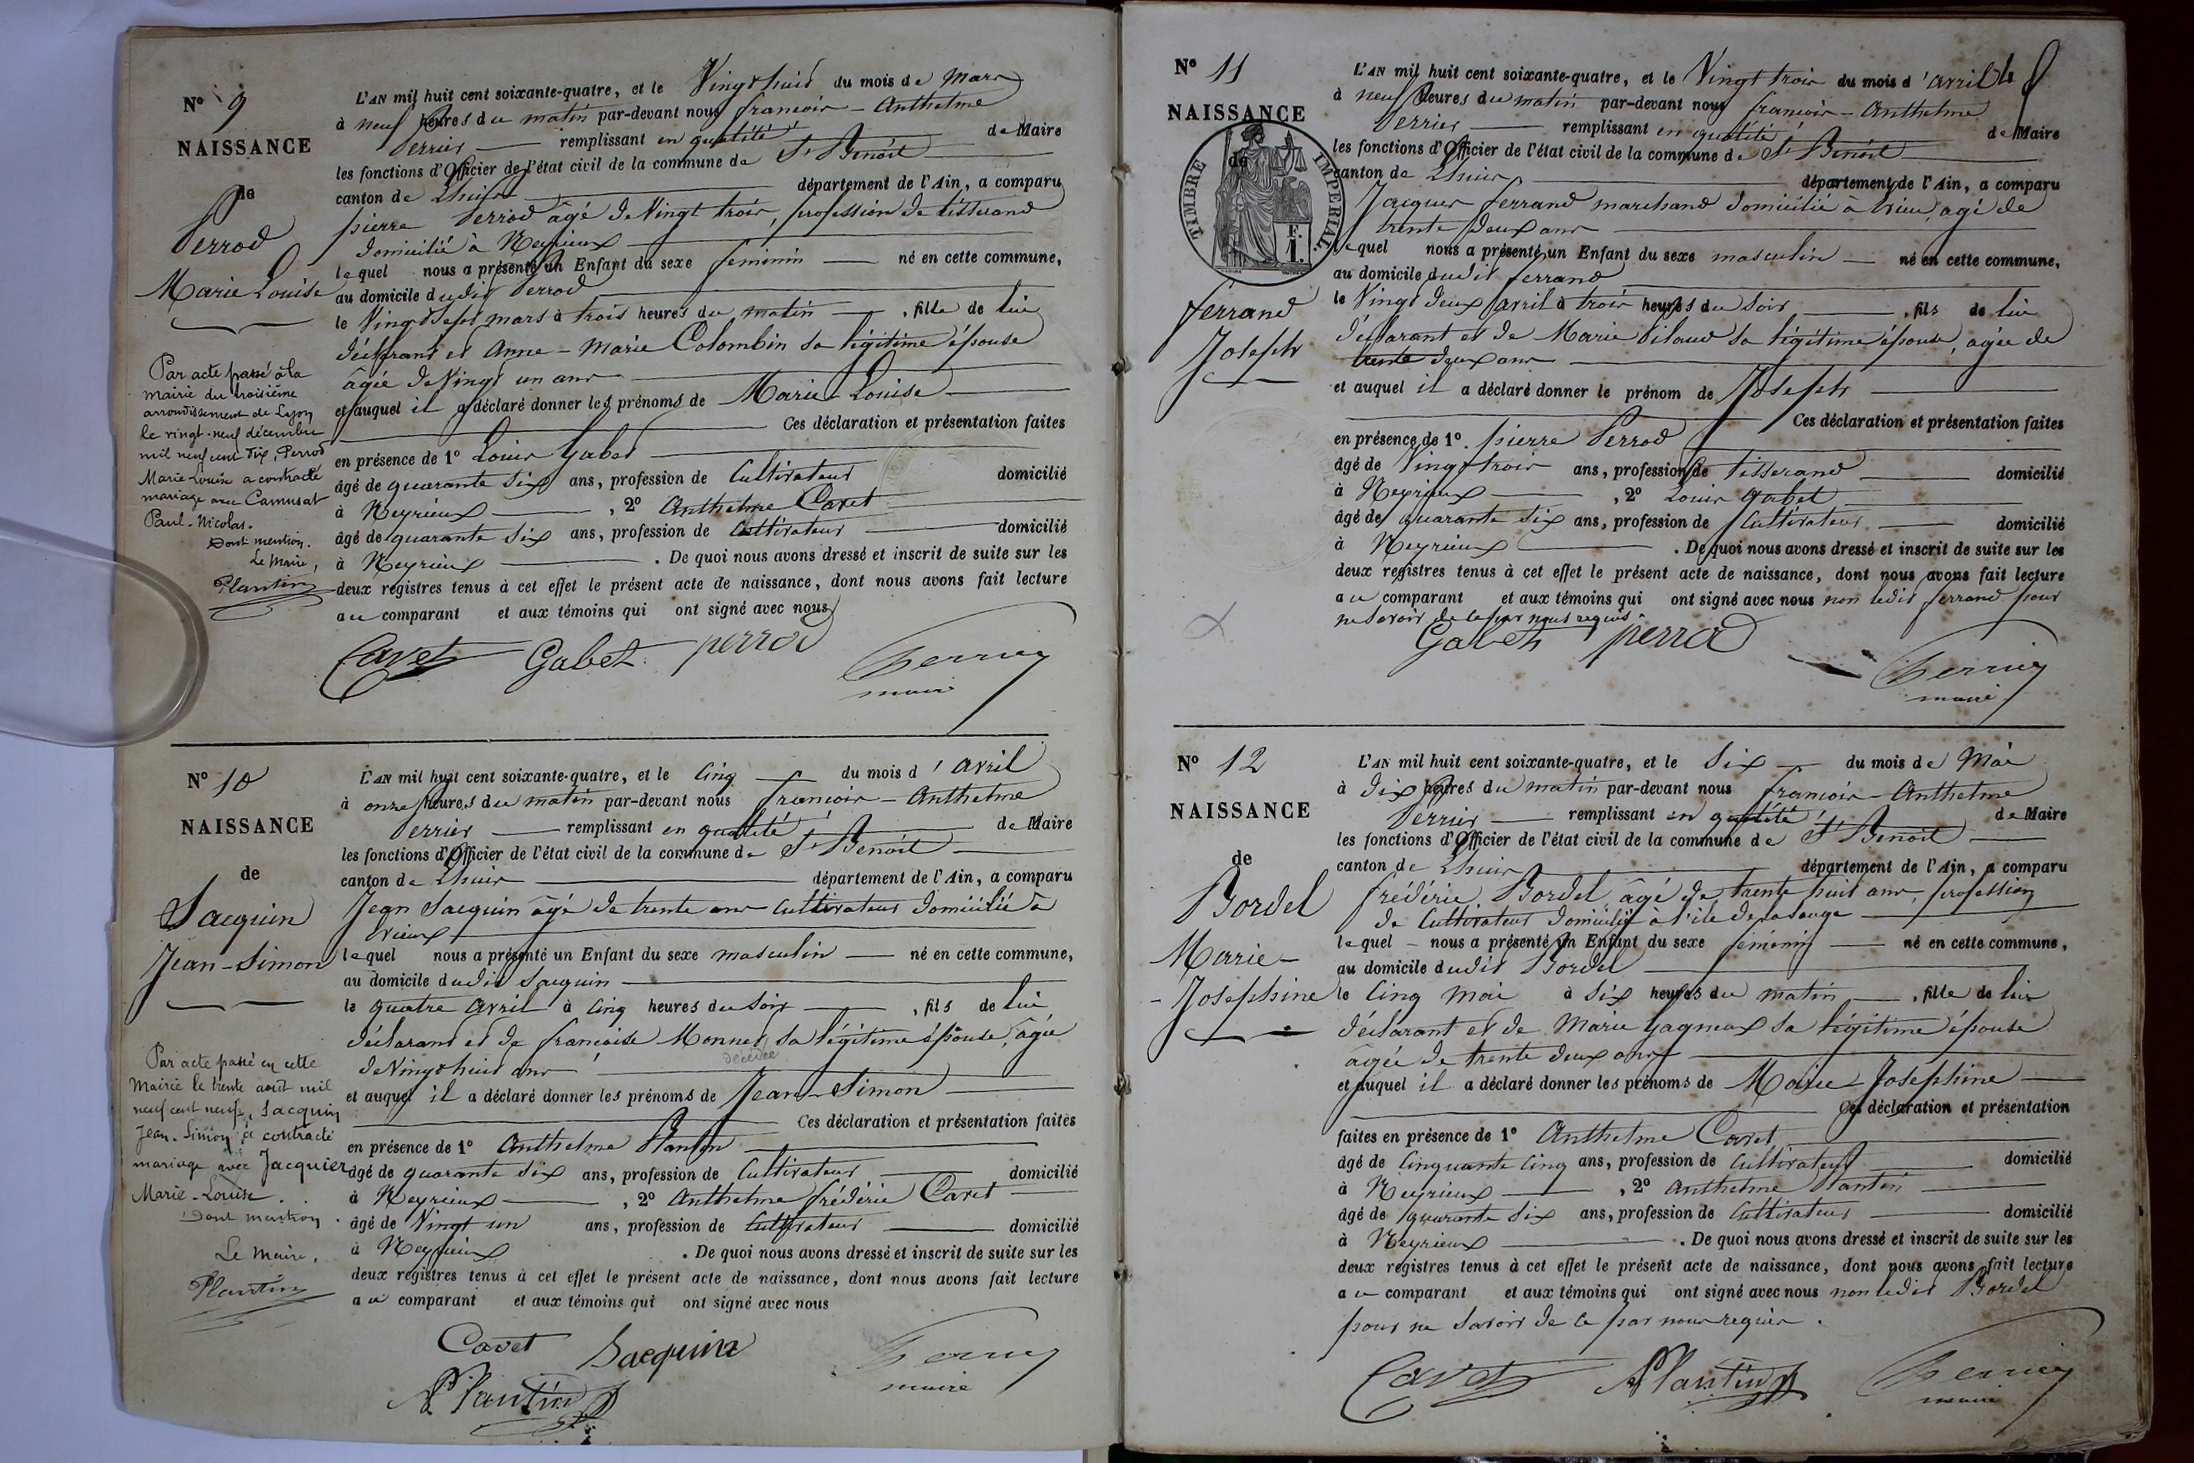 N° 9
NAISSANCE
de
Perrod
Marie Louise
Par acte passé à la
mairie du troisième
arrondissement de Lyon
le vingt-neuf décembre
mil neuf cent dix, Perrod
Marie Louise a contracté
mariage avec Camusat
Paul-Nicolas.
Dont mention.
Le Maire,
Plantin
L'AN mil huit cent soixante-quatre, et le Vingt huit du mois de Mars
à neuf heures du matin par-devant nous françois-Anthelme
Perrier remplissant en qualité de Maire
les fonctions d'Officier de l'état civil de la commune de St Benoît
canton de Lhuis département de l'Ain, a comparu
pierre Perrod âgé de Vingt trois, profession de tisserand
domicilié à Neyrieux
lequel nous a présenté un Enfant du sexe feminin né en cette commune,
au domicile dudit Perrod
le Vingt sept mars à trois heures du matin, fille de lui
déclarant et Anne-Marie Colombin sa légitime épouse
âgée de Vingt un ans
et auquel il a déclaré donner les prénoms de Marie-Louise
Ces déclaration et présentation faites
en présence de 1° Louis Gabet
âgé de quarante six ans, profession de Cultivateur domicilié
à Neyrieux, 2° Anthelme Cavet
âgé de quarante six ans, profession de Cultivateur domicilié
à Neyrieux. De quoi nous avons dressé et inscrit de suite sur les
deux registres tenus à cet effet le présent acte de naissance, dont nous avons fait lecture
au comparant et aux témoins qui ont signé avec nous
Cavet Gabet perrod Perrier
maire
N° 10
NAISSANCE
de
Sacquin
Jean-Simon
Par acte passé en cette
Mairie le trente août mil
neuf cent neuf, Sacquin
Jean-Simon a contracté
mariage avec Jacquier
Marie-Louise.
Dont mention.
Le Maire,
Plantin
L'AN mil huit cent soixante-quatre, et le Cinq du mois d'avril
à onze heures du matin par-devant nous françois-Anthelme
Perrier remplissant en qualité de Maire
les fonctions d'Officier de l'état civil de la commune de St Benoît
canton de Lhuis département de l'Ain, a comparu
Jean Sacquin âgé de trente ans Cultivateur domicilié à
Vrieux
lequel nous a présenté un Enfant du sexe masculin né en cette commune,
au domicile dudit Sacquin
le quatre Avril à Cinq heures du soir, fils de lui
déclarant et de françoise Monnet sa légitime épouse, âgée
de Vingt huit ans
décédée
et auquel il a déclaré donner les prénoms de Jean-Simon
Ces déclaration et présentation faites
en présence de 1° Anthelme Plantin
âgé de quarante six ans, profession de Cultivateur domicilié
à Neyrieux, 2° Anthelme frédéric Cavet
âgé de Vingt un ans, profession de Cultivateur domicilié
à Neyrieux. De quoi nous avons dressé et inscrit de suite sur les
deux registres tenus à cet effet le présent acte de naissance, dont nous avons fait lecture
au comparant et aux témoins qui ont signé avec nous
Cavet Sacquin Perrier
maire
Plantin
N° 11
NAISSANCE
de
TIMBRE IMPERIAL
ferrand
Joseph
L'AN mil huit cent soixante-quatre, et le Vingt trois du mois d'avril
à neuf heures du matin par-devant nous françois-Anthelme
Perrier remplissant en qualité de Maire
les fonctions d'Officier de l'état civil de la commune de St Benoît
canton de Lhuis département de l'Ain, a comparu
Jacques ferrand marchand domicilié à Vrieu, agé de
trente deux ans
lequel nous a présenté un Enfant du sexe masculin né en cette commune,
au domicile dudit ferrand
le Vingt deux avril à trois heures du soir, fils de lui
déclarant et de Marie Pilaud sa légitime épouse, agée de
trente deux ans
et auquel il a déclaré donner le prénom de Joseph
Ces déclaration et présentation faites
en présence de 1° pierre Perrod
âgé de Vingt trois ans, profession de tisserand domicilié
à Neyrieux, 2° Louis Gabet
âgé de quarante six ans, profession de Cultivateur domicilié
à Neyrieux. De quoi nous avons dressé et inscrit de suite sur les
deux registres tenus à cet effet le présent acte de naissance, dont nous avons fait lecture
au comparant et aux témoins qui ont signé avec nous non ledit ferrand pour
ne savoir de ce par nous requis
Gabet perrod Perrier
maire
N° 12
NAISSANCE
de
Bordel
Marie-
-Josephine
L'AN mil huit cent soixante-quatre, et le Six du mois de Mai
à dix heures du matin par-devant nous françois-Anthelme
Perrier remplissant en qualité de Maire
les fonctions d'Officier de l'état civil de la commune de St Benoît
canton de Lhuis département de l'Ain, a comparu
frédéric Bordel, âgé de trente huit ans, profession
de Cultivateur domicilié à l'ile de la sauge
lequel nous a présenté un Enfant du sexe féminin né en cette commune,
au domicile dudit Bordel
le Cinq Mai à Six heures du matin, fille de lui
déclarant et de Marie Gagneux sa légitime épouse
âgée de trente deux ans
et auquel il a déclaré donner les prénoms de Marie-Josephine
Ces déclaration et présentation
faites en présence de 1° Anthelme Cavet
âgé de Cinquante Cinq ans, profession de Cultivateur domicilié
à Neyrieux, 2° Anthelme Plantin
âgé de quarante six ans, profession de Cultivateur domicilié
à Neyrieux. De quoi nous avons dressé et inscrit de suite sur les
deux registres tenus à cet effet le présent acte de naissance, dont nous avons fait lecture
au comparant et aux témoins qui ont signé avec nous non ledit Bordel
pour ne savoir de ce par nous requis.
Cavet Plantin Perrier
maire